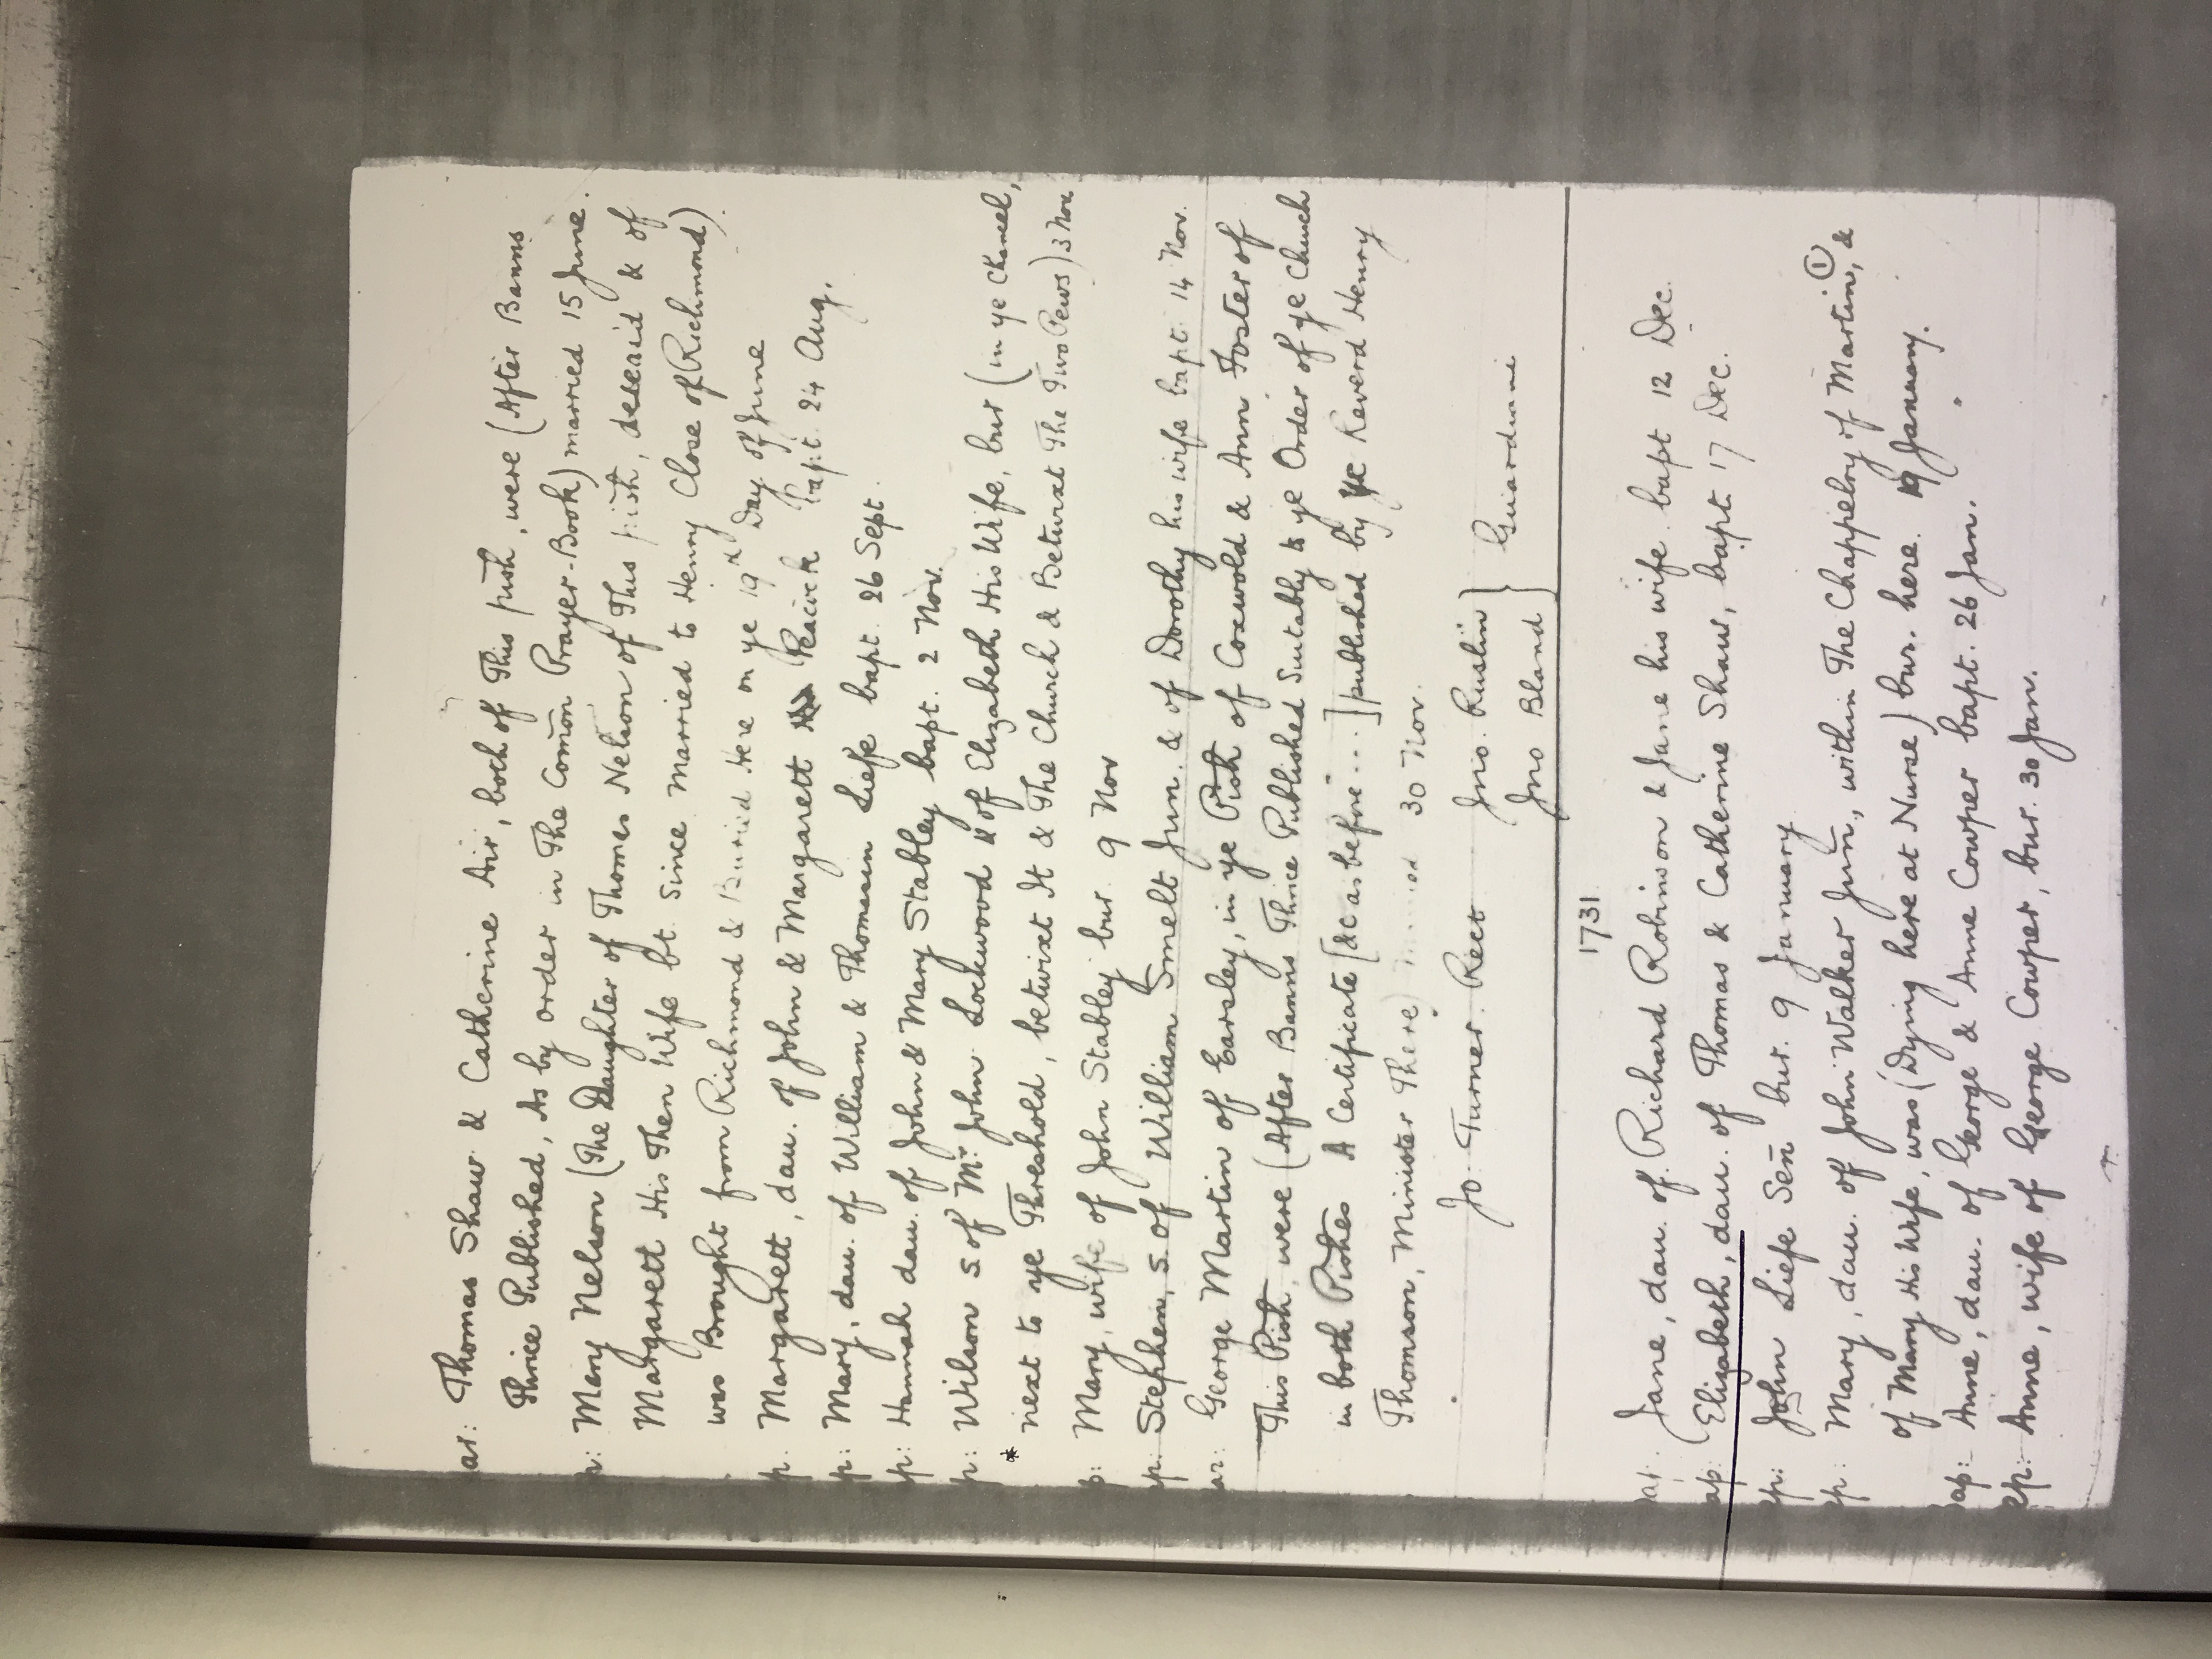 ar: Thomas Shaw & Catherine Air, both of This pish, were (After Banns
Thrice Published, As by order in The Comōn Prayer-Book) married 15 June.
p: Mary Nelson (The Daughter of Thomas Nelson of This pish, deceāid & of
Margarett His Then Wife bt. Since Married to Henry Close of Richmond)
was Brought from Richmond & Buried Here on ye 19th Day of June
p. Margarett, dau. of John & Margarett Peacock bapt. 24 Aug.
p: Mary, dau. of William & Thomasin Liefe bapt. 26 Sept.
p: Hannah dau. of John & Mary Stabley bapt. 2 Nov.
p: Wilson s of Mr John Lockwood & of Elizabeth His Wife, bur (in ye Chancel,
* next to ye Threshold, betwixt It & The Church & Betwixt The Two Pews) 3 Nov
p: Mary, wife of John Stabley bur. 9 Nov
p: Stephen, s. of William Smelt Jun. & of Dorothy his wife bapt. 14 Nov.
ar: George Martin of Earsley, in ye Pish of Coxwold & Ann Foster of
This Pish, were (After Banns Thrice Published Suitably to ye Order of ye Church
in both Pishes A Certificate [&c as before ...] published by ye Reverd Henry
Thomson, Minister There) 30 Nov.
Jo. Turner Rect Jno. Ruslin } Guardiani
Jno Bland
1731
ap. Jane, dau. of Richard Robinson & Jane his wife bapt 12 Dec.
ap: (Elizabeth, dau. of Thomas & Catherine Shaw, bapt 17 Dec.
p: John Liefe Señ bur. 9 January
p: Mary, dau. of John Walker Juñ, within The Chappelry of Martin, ① &
of Mary His Wife, was (Dying here at Nurse) bur. here 19 January.
ap: Anne, dau. of George & Anne Cowper bapt. 26 Jan.
p: Anne, wife of George Cowper, bur. 30 Jan.